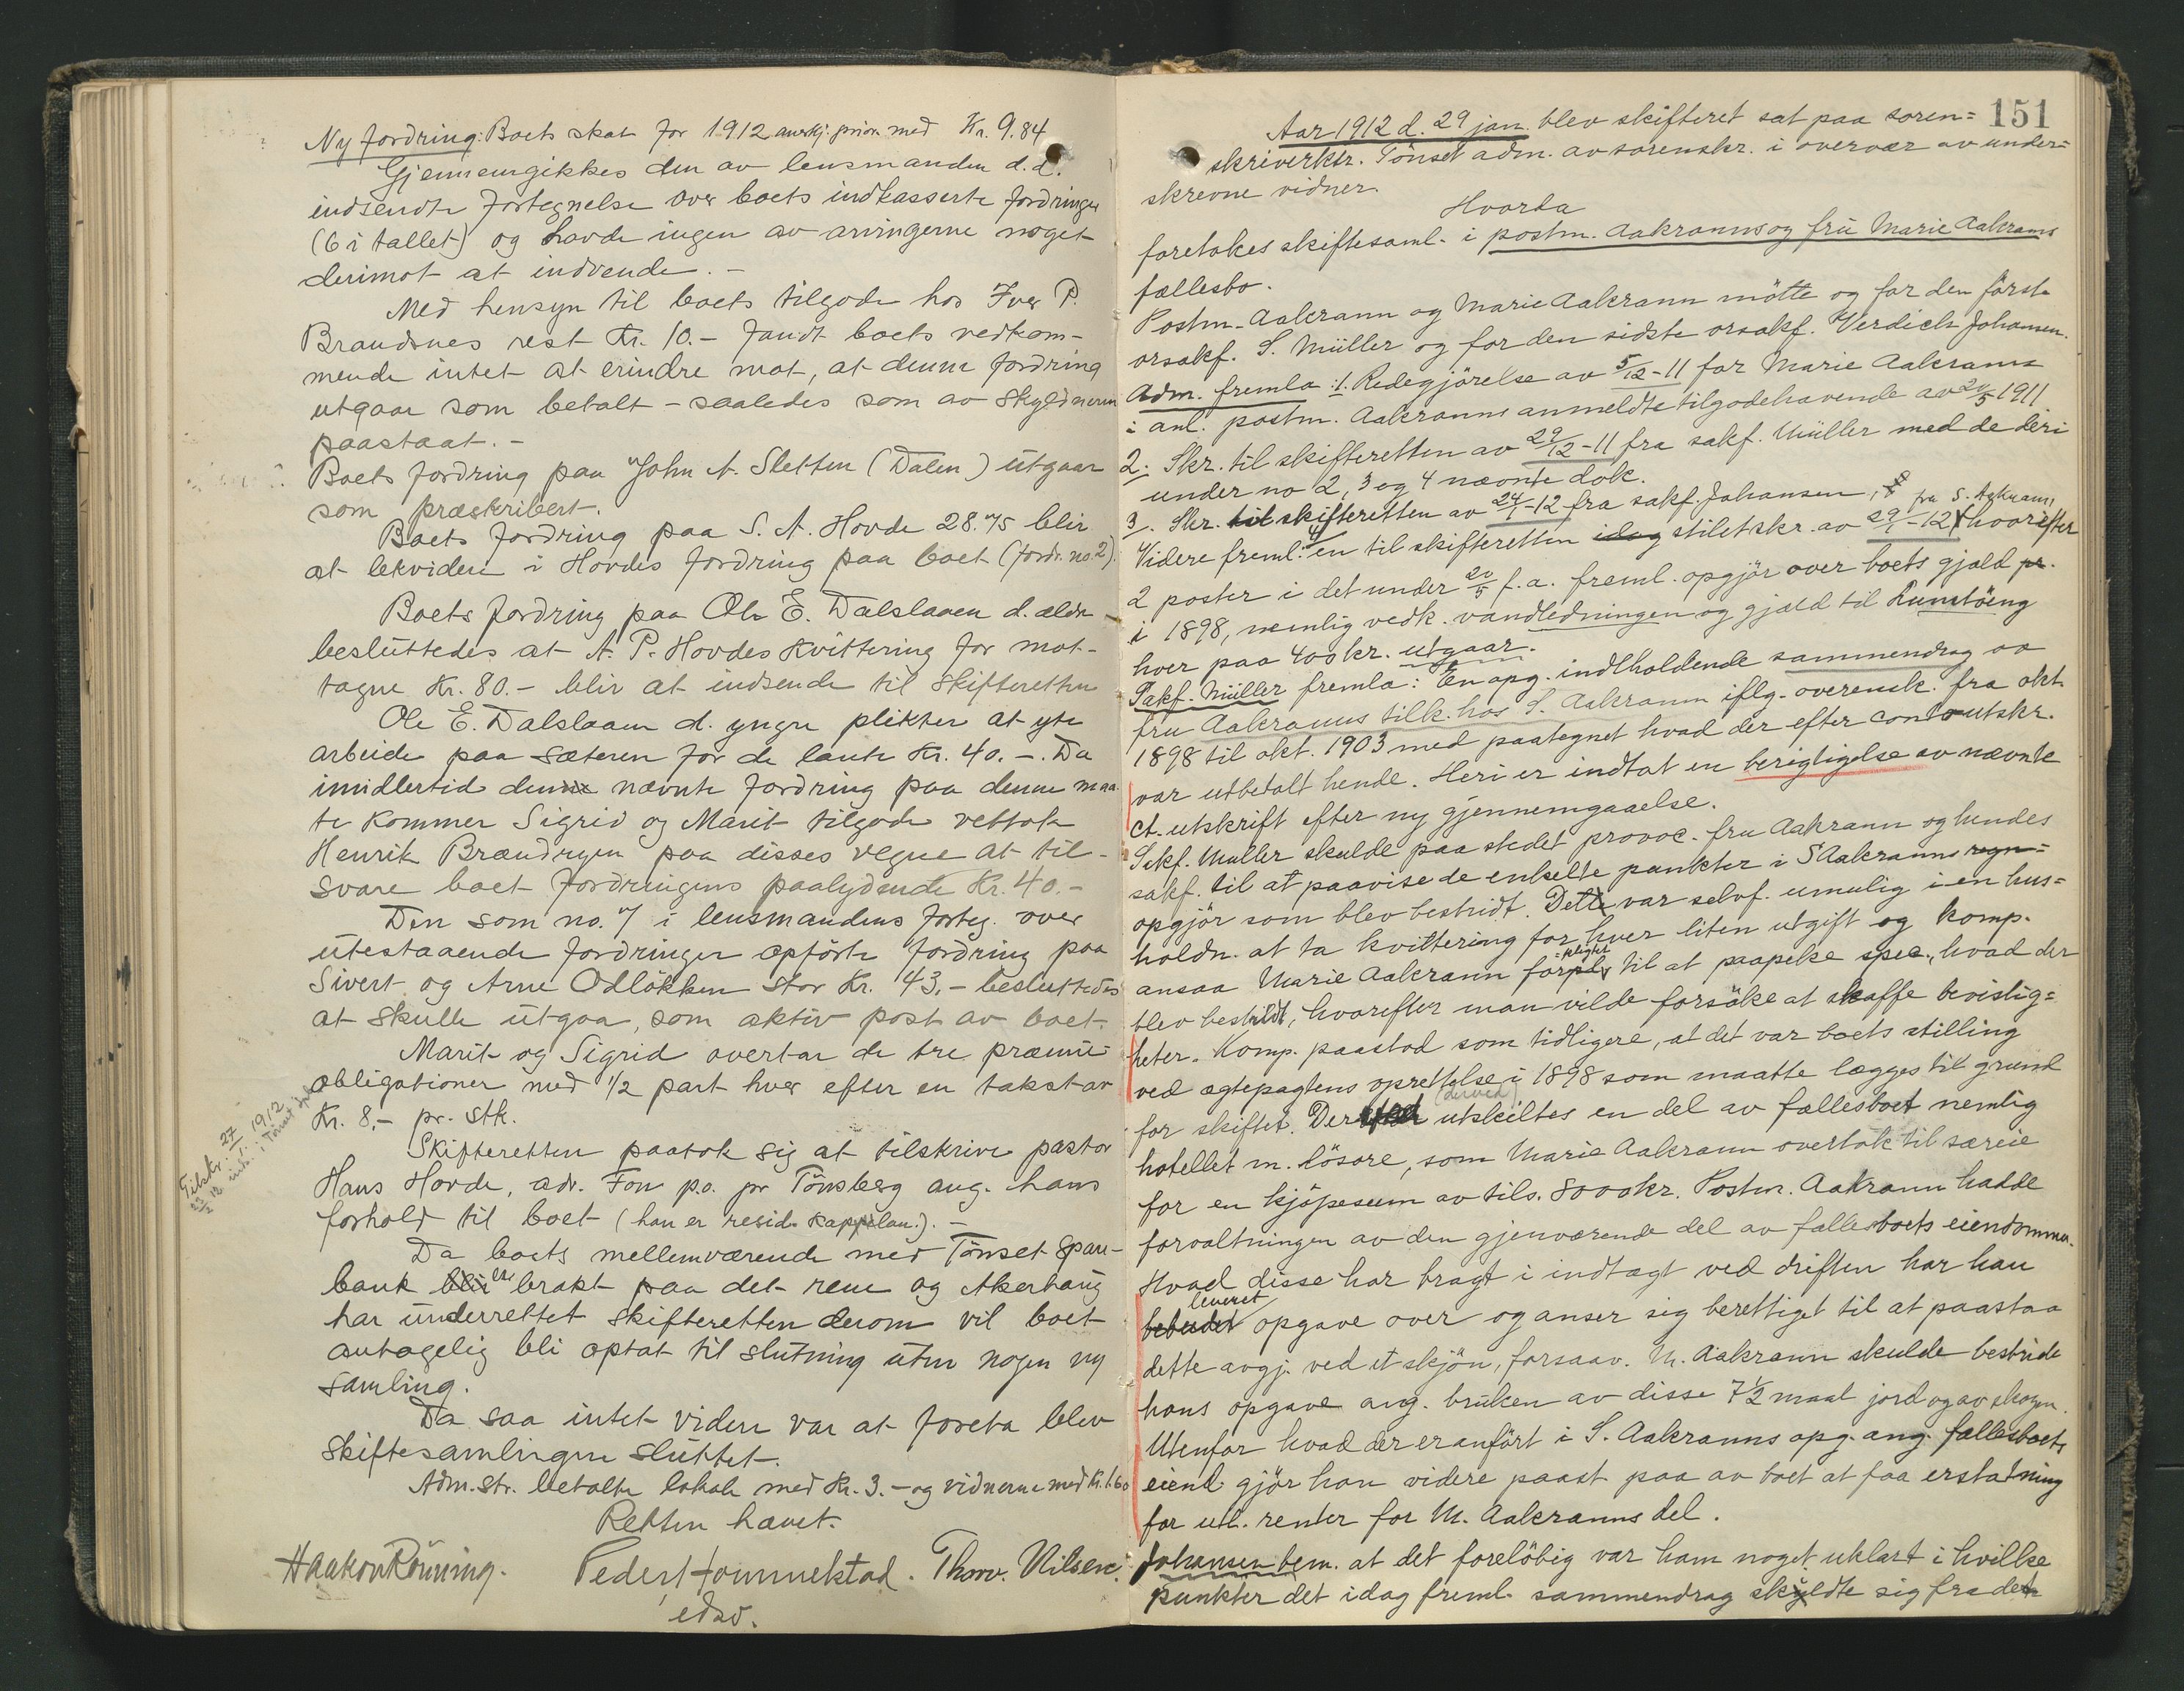 Ny fordring: Boets skat for 1912 anerkj. prior. med Kr. 9.84
Gjennemgikkes den av lensmanden d.d.
indsendte fortegnelse over boets indkasserte fordringer
(6 i tallet) og havde ingen av arvingerne noget
derimot at indvende. -
Med hensyn til boets tilgode hos Iver P.
Brandsnes rest Kr. 10.- fandt boets vedkom-
mende intet at erindre mot, at denne fordring
utgaar som betalt - saaledes som av skyldneren
paastaat. -
Boets fordring paa John A. Sletten (Dalen) utgaar
som præskribert.
Boets fordring paa S. A. Hovde 28.75 blir
at likvidere i Hovdes fordring paa boet (fordr. no. 2).
Boets fordring paa Ole E. Dalslaaen d. ældr
besluttedes at A. P. Hovdes kvittering for mot-
tagne Kr. 80.- blir at indsende til skifteretten
Ole E. Dalslaaen d. yngre plikter at yte
arbeide paa sæteren for de laante Kr. 40.-. Da
imidlertid denne nævnte fordring paa denne maa-
te kommer Sigrid og Marit tilgode vettok
Henrik Brændryen paa disses vegne at til-
svare boet fordringens paalydende Kr. 40.-
Den som no. 7 i lensmandens forteg. over
utestaaende fordringer opførte fordring paa
Sivert og Arne Odløkken stor Kr. 43.- besluttedes
at skulle utgaa, som aktiv post av boet.
Marit og Sigrid overtar de tre præmie-
obligationer med 1/2 part hver efter en takst av
Kr. 8.- pr. stk.
Tilskr. 27/1 1912
Skifteretten paatok sig at tilskrive pastor
Hans Hovde, adr. Fon p.o. pr Tönsberg ang. hans
forhold til boet (han er resid. kappelan.). -
Da boets mellemværende med Tönset Spare-
bank blir er brakt paa det rene og Akerhaug
har underrettet skifteretten derom vil boet
antagelig bli optat til slutning uten nogen ny
samling.
Da saa intet videre var at foreta blev
skiftesamlingen sluttet.
Adm. str. betalte lokale med Kr. 3.- og vidnerne med Kr. 1.60
Retten hævet.
Haakon Rönning. Peder Hommelstad. Thorv. Nilsen.
edsv.
151
Aar 1912 d. 29 jan. blev skifteret sat paa soren=
skriverktr. Tönset adm. av sorenskr. i overvær av under=
skrevne vidner.
Hvorda
foretokes skiftesaml. i postm. Aakranns og fru Marie Aakranns
fællesbo.
Postm. Aakrann og Marie Aakrann mötte og for den förste
orsakf. S. Müller og for den sidste orsakf. Verdich Johansen.
Adm. fremla: 1. Redegjörelse av 5/12-11 for Marie Aakrann
i anl. postm. Aakranns anmeldte tilgodehavende av 20/5 1911
2. Skr. til skifteretten av 29/12-11 fra sakf. Müller med de deri
under no 2, 3 og 4 nævnte dok.
3. Skr. til skifteretten av 24/1-12 fra sakf. Johansen,
Videre freml. en til skifteretten idag stilet skr. av 29/1-12 fra S. Aakrann, hvorefter
2 poster i det under 20/5 f.a. freml. opgjör over boets gjæld pr.
i 1898, nemlig vedk. vandledningen og gjæld til Lunstöeng
hver paa 400 kr. utgaar.
Sakf. Müller fremla: En opg. indholdende sammendrag av
fru Aakranns tilk. hos S. Aakrann iflg. overensk. fra okt.
1898 til okt. 1903 med paategnet hvad der efter contoutskr.
var utbetalt hende. Heri er indtat en berigtigelse av nævnte
ct. utskrift efter ny gjennemgaaelse.
Sakf. Müller skulde paa stedet provoc. fru Aakrann og hendes
sakf. til at paavise de enkelte punkter i S Aakranns regn=
opgjör som blev bestridt. Dette var selvf. umulig i en hus=
holdn. at ta kvittering for hver liten utgift og komp.
ansaa Marie Aakrann forpligtet til at paapeke spec., hvad der
blev bestridt, hvorefter man vilde forsöke at skaffe bevislig=
heter. Komp. paastod som tidligere, at det var boets stilling
ved ægtepagtens oprettelse i 1898 som maatte lægges til grund
for skiftet. Derefter (derved) utskiltes en del av fællesboet nemlig
hotellet m. lösöre, som Marie Aakrann overtok til særeie
for en kjöpesum av tils. 8000 kr. Postm. Aakrann hadde
forvaltningen av den gjenværende del av fællesboets eiendommer.
Hvad disse har bragt i indtægt ved driften har han
bebudet leveret opgave over og anser sig berettiget til at paastaa
dette avgj. ved et skjön, forsaav. M. Aakrann skulde bestride
hans opgave ang. bruken av disse 7 1/2 maal jord og av skogen.
Utenfor hvad der er anfört i S. Aakranns opg. ang. fællesboets
eiend. gjör han videre paast. paa av boet at faa erstatning
for utl. renter for M. Aakranns del.
Johansen bem. at det forelöbig var ham noget uklart i hvilke
punkter det idag freml. sammendrag skyldte sig fra det